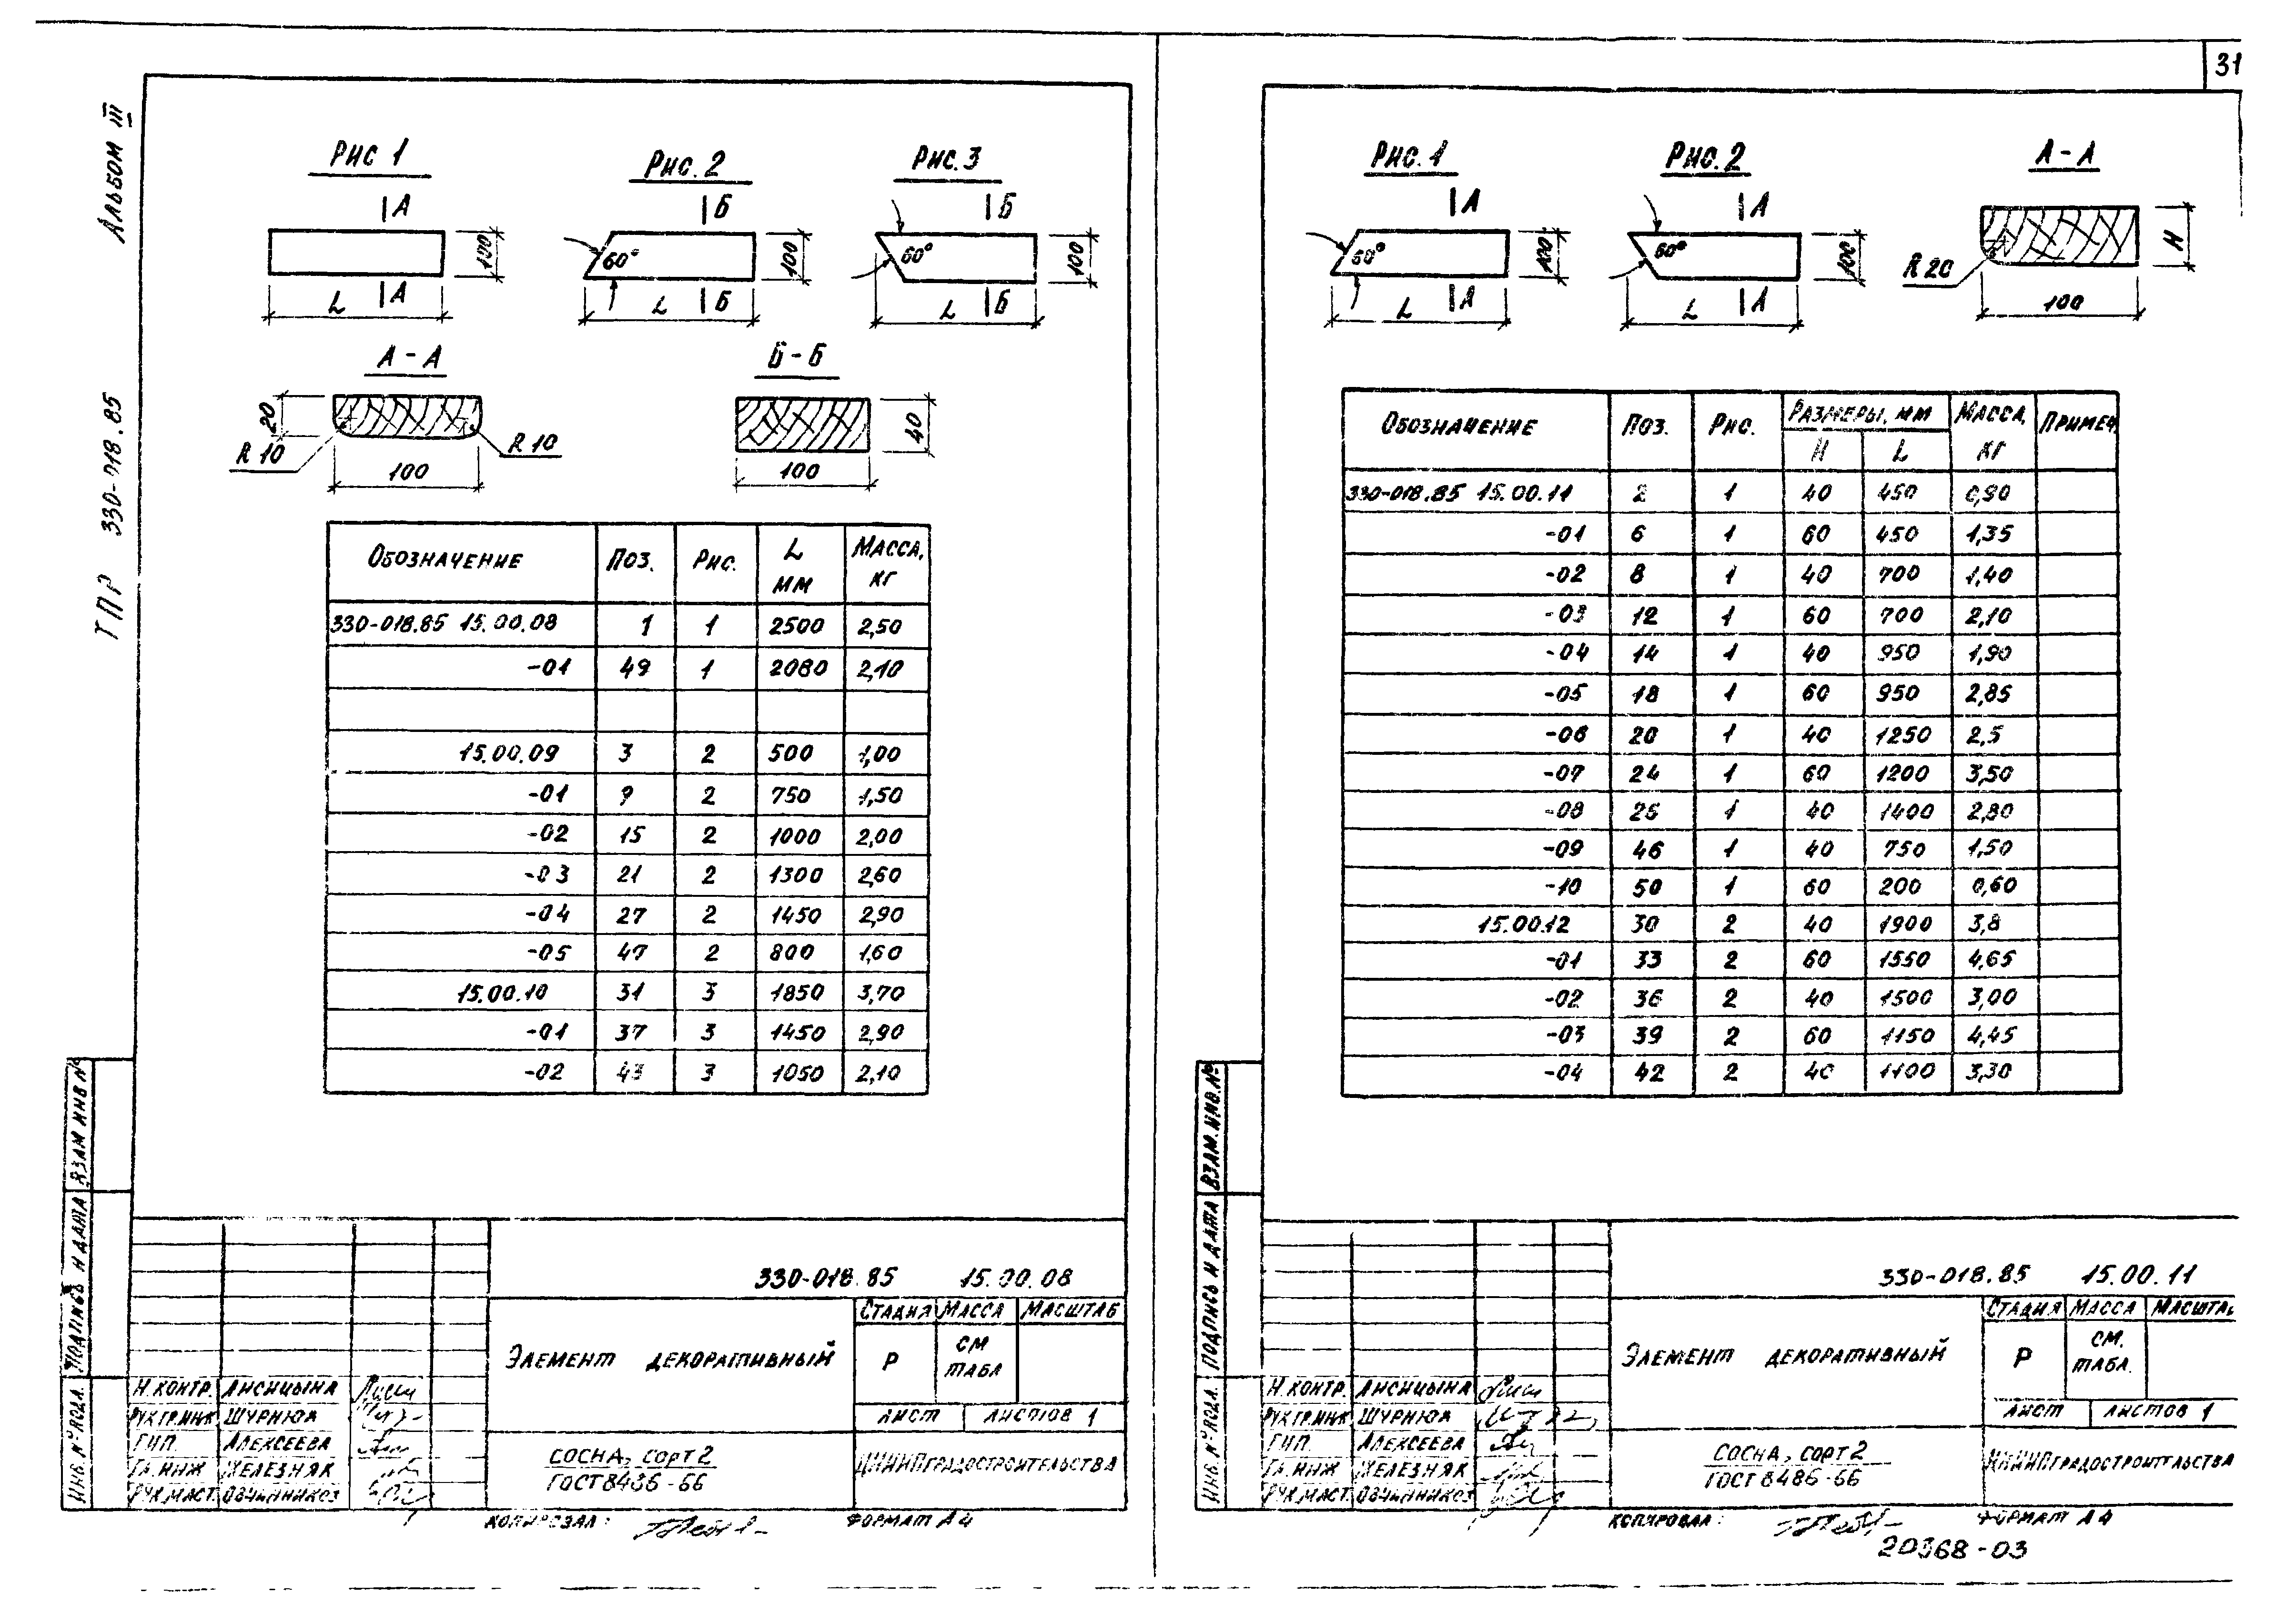 31
Альбом III
ТПР 330-018.85
Рис 1
Рис. 2
Рис. 3
А
Б
Б
100
60°
100
60°
100
А
L
Б
L
Б
L
А-А
Б-Б
20
R 10
R 10
100
40
100
Обозначение Поз. Рис. L мм Масса, кг
330-018.85 15.00.08 1 1 2500 2,50
-01 49 1 2080 2,10
15.00.09 3 2 500 1,00
-01 9 2 750 1,50
-02 15 2 1000 2,00
-03 21 2 1300 2,60
-04 27 2 1450 2,90
-05 47 2 800 1,60
15.00.10 31 3 1850 3,70
-01 37 3 1450 2,90
-02 43 3 1050 2,10
330-018.85 15.00.08
Элемент декоративный
Стадия Масса Масштаб
Р см табл
Лист Листов 1
Н.контр. Лисицына
Рук.гр.инж Шурнюк
ГИП. Алексеева
Гл.инж Железняк
Рук.маст. Овчинников
сосна, сорт 2
ГОСТ 8486-66
ЦНИИПградостроительства
Инв. № подл. Подпись и дата Взам инв №
Копировал:
Формат А4
Рис. 1
Рис. 2
А-А
А
А
60°
100
60°
100
L
А
L
А
R 20
Н
100
Обозначение Поз. Рис. Размеры, мм Масса, кг Примеч.
Н L
330-018.85 15.00.11 2 1 40 450 0,90
-01 6 1 60 450 1,35
-02 8 1 40 700 1,40
-03 12 1 60 700 2,10
-04 14 1 40 950 1,90
-05 18 1 60 950 2,85
-06 20 1 40 1250 2,5
-07 24 1 60 1200 3,50
-08 26 1 40 1400 2,80
-09 46 1 40 750 1,50
-10 50 1 60 200 0,60
15.00.12 30 2 40 1900 3,8
-01 33 2 60 1550 4,65
-02 36 2 40 1500 3,00
-03 39 2 60 1150 4,45
-04 42 2 40 1100 3,30
330-018.85 15.00.11
Элемент декоративный
Стадия Масса Масштаб
Р см. табл.
Лист Листов 1
Н.контр. Лисицына
Рук.гр.инж Шурнюк
ГИП. Алексеева
Гл.инж Железняк
Рук.маст. Овчинников
сосна, сорт 2
ГОСТ 8486-66
ЦНИИПградостроительства
Инв. № подл. Подпись и дата Взам.инв.№
Копировал:
Формат А4
20368-03